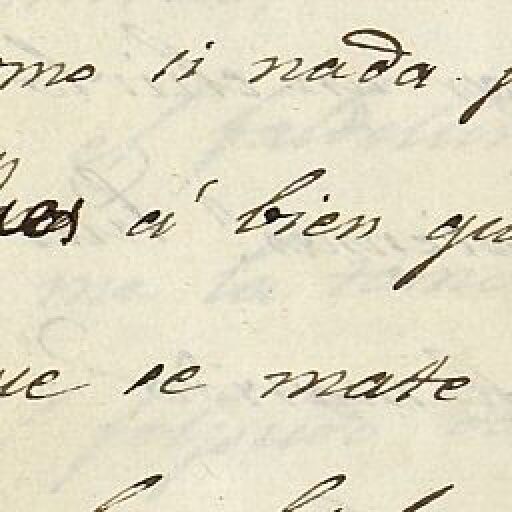 omo si nada p
á bien qu
ue se mate